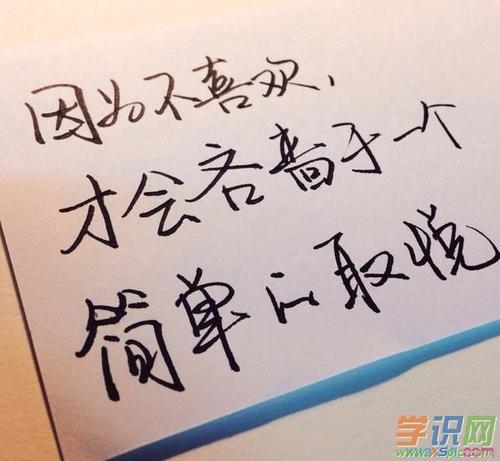 因为不喜欢,
才会吝啬于一个
简单的取悦
学识网